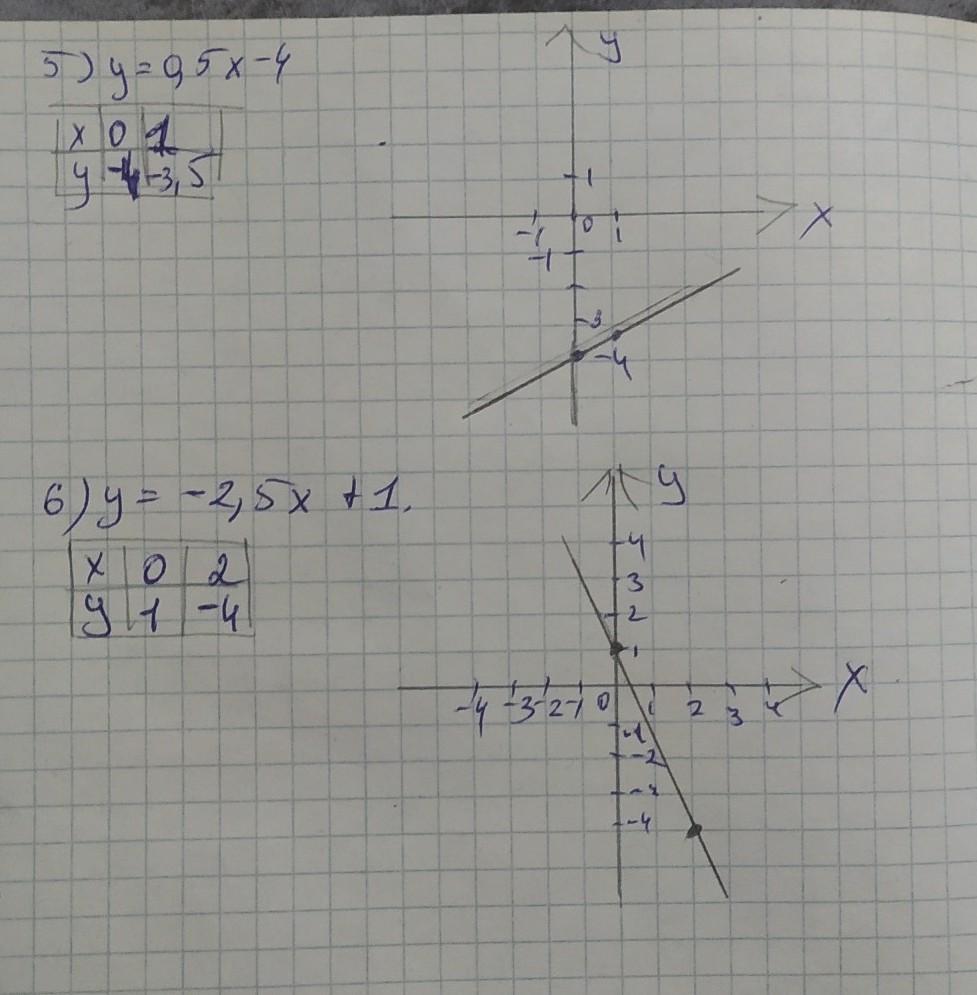 5) y = 0,5x - 4
x 0 1
y -4 -3,5
y
1
-1 0 1 x
-1
-3
-4
6) y = -2,5x + 1.
x 0 2
y 1 -4
y
4
3
2
1
-4 -3 -2 -1 0 1 2 3 4 x
-1
-2
-3
-4